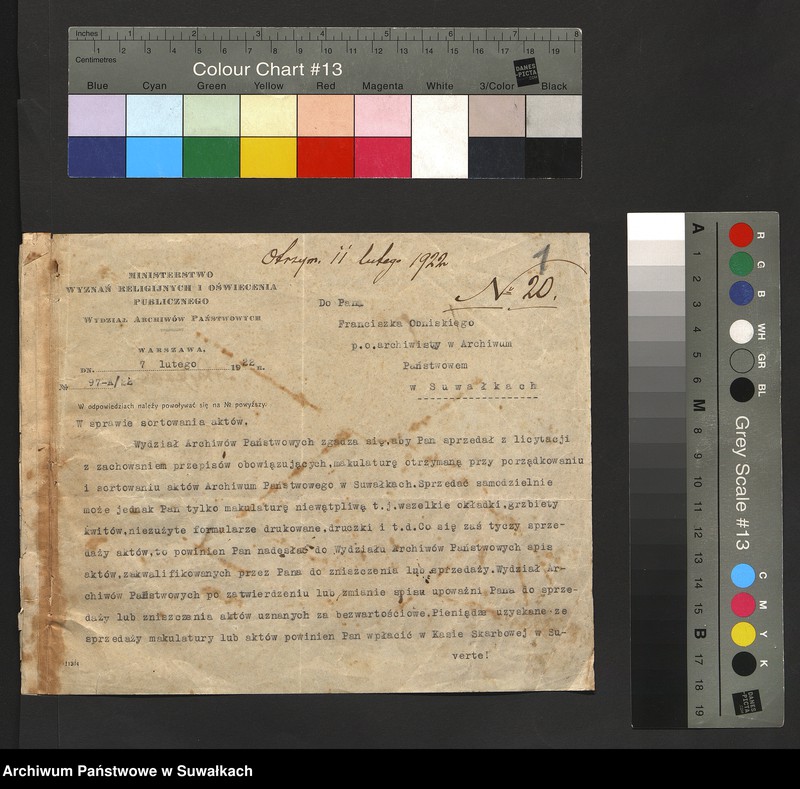 Inches 1 2 3 4 5 6 7 8
1 2 3 4 5 6 7 8 9 10 11 12 13 14 15 16 17 18 19
Centimetres
Colour Chart #13
DANES
-PICTA
Blue Cyan Green Yellow Red Magenta White 3/Color Black
Otrzym. 11 lutego 1922
1
№ 20.
MINISTERSTWO
WYZNAŃ RELIGIJNYCH I OŚWIECENIA
PUBLICZNEGO
WYDZIAŁ ARCHIWÓW PAŃSTWOWYCH
WARSZAWA,
DN. 7 lutego 1922 R.
№ 97-A/22
W odpowiedziach należy powoływać się na № powyższy.
Do Pana
Franciszka Obniskiego
p.o.archiwisty w Archiwum
Państwowem
w Suwałkach
W sprawie sortowania aktów.
Wydział Archiwów Państwowych zgadza się,aby Pan sprzedał z licytacji
z zachowaniem przepisów obowiązujących,makulaturę otrzymaną przy porządkowaniu
i sortowaniu aktów Archiwum Państwowego w Suwałkach.Sprzedać samodzielnie
może jednak Pan tylko makulaturę niewątpliwą t.j.wszelkie okładki,grzbiety
kwitów,niezużyte formularze drukowane,druczki i t.d.Co się zaś tyczy sprze-
daży aktów,to powinien Pan nadesłać do Wydziału Archiwów Państwowych spis
aktów,zakwalifikowanych przez Pana do zniszczenia lub sprzedaży.Wydział Ar-
chiwów Państwowych po zatwierdzeniu lub zmianie spisu upoważni Pana do sprze-
daży lub zniszczenia aktów uznanych za bezwartościowe.Pieniądze uzyskane ze
sprzedaży makulatury lub aktów powinien Pan wpłacić w Kasie Skarbowej w Su-
verte!
A 1 2 3 4 5 6 M 8 9 10 11 12 13 14 15 B 17 18 19
R G B WH GR BL
Grey Scale #13
C M Y K
DANES
-PICTA
Archiwum Państwowe w Suwałkach